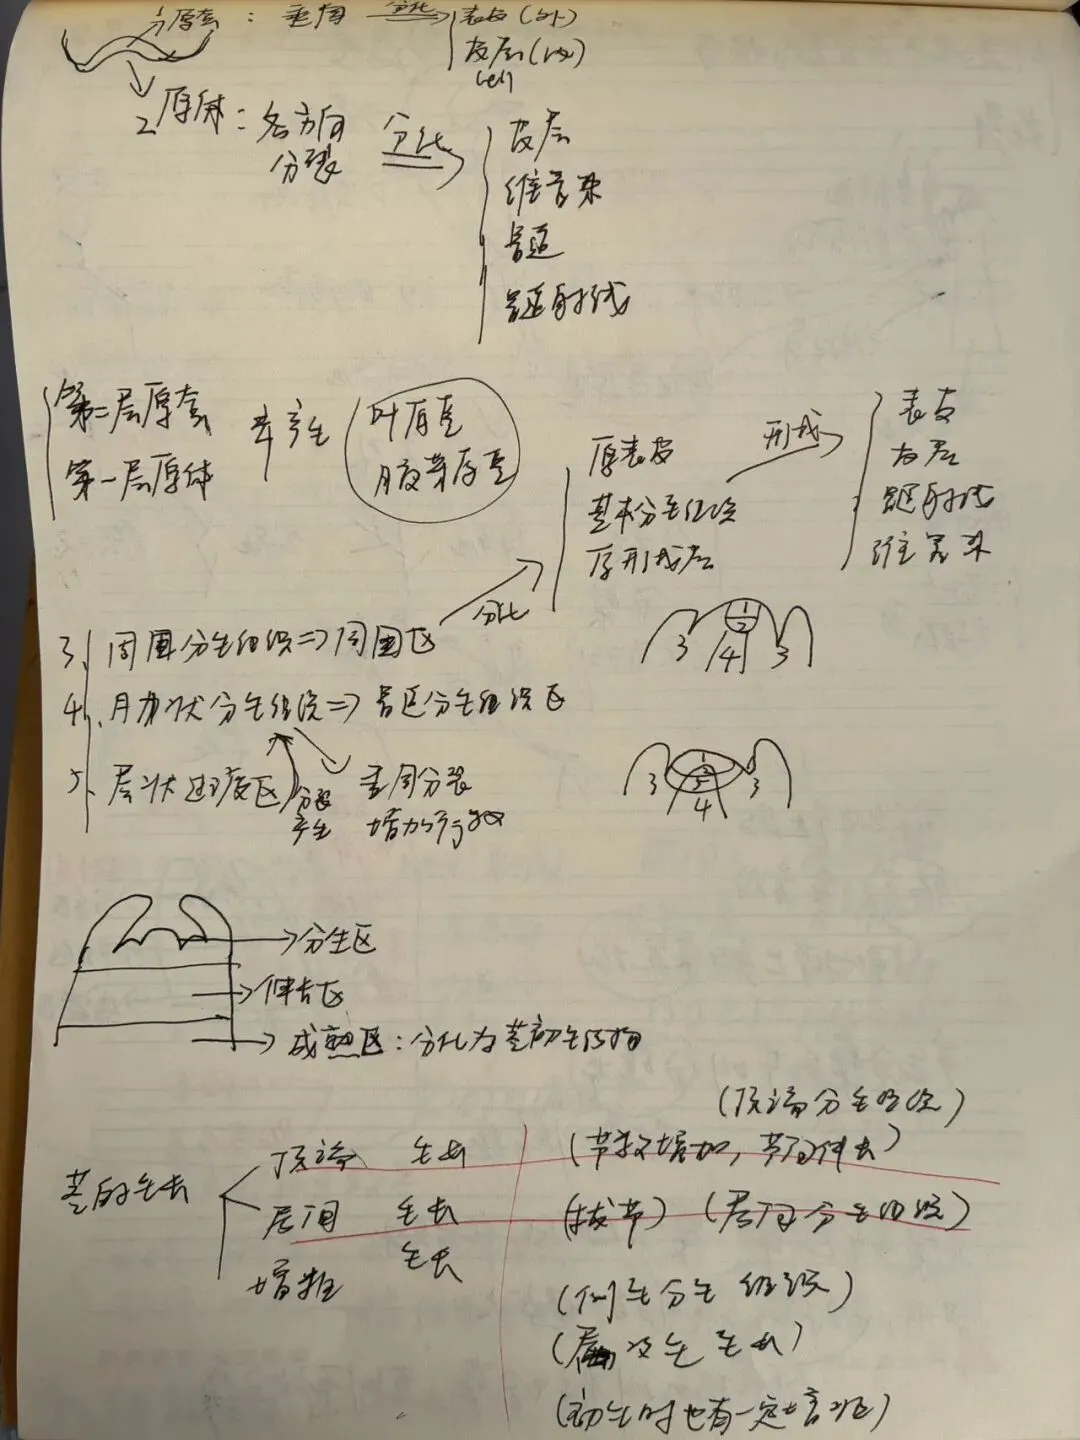 原套：垂周 分化 表皮(外)
皮层(内)
cell
2 原体：各方向 分化 皮层
分裂 维管束
髓
髓射线
第二层原套 产生 叶原基
第一层原体 腋芽原基
原表皮 形成 表皮
基本分生组织 皮层
原形成层 髓射线
维管束
分化
3、周围分生组织⇒周围区
4、肋状分生组织⇒髓区分生组织区
5、层状过渡区 分裂 垂周分裂
产生 增加行数
3 1 2 4 3
3 1 2 5 4 3
→分生区
→伸长区
→成熟区：分化为茎初生结构
(顶端分生组织)
茎的生长 顶端 生长 (节数增加，节间伸长)
居间 生长 (拔节) (居间分生组织)
增粗 生长 (侧生分生组织)
(次生生长)
(初生时也有一定增粗)